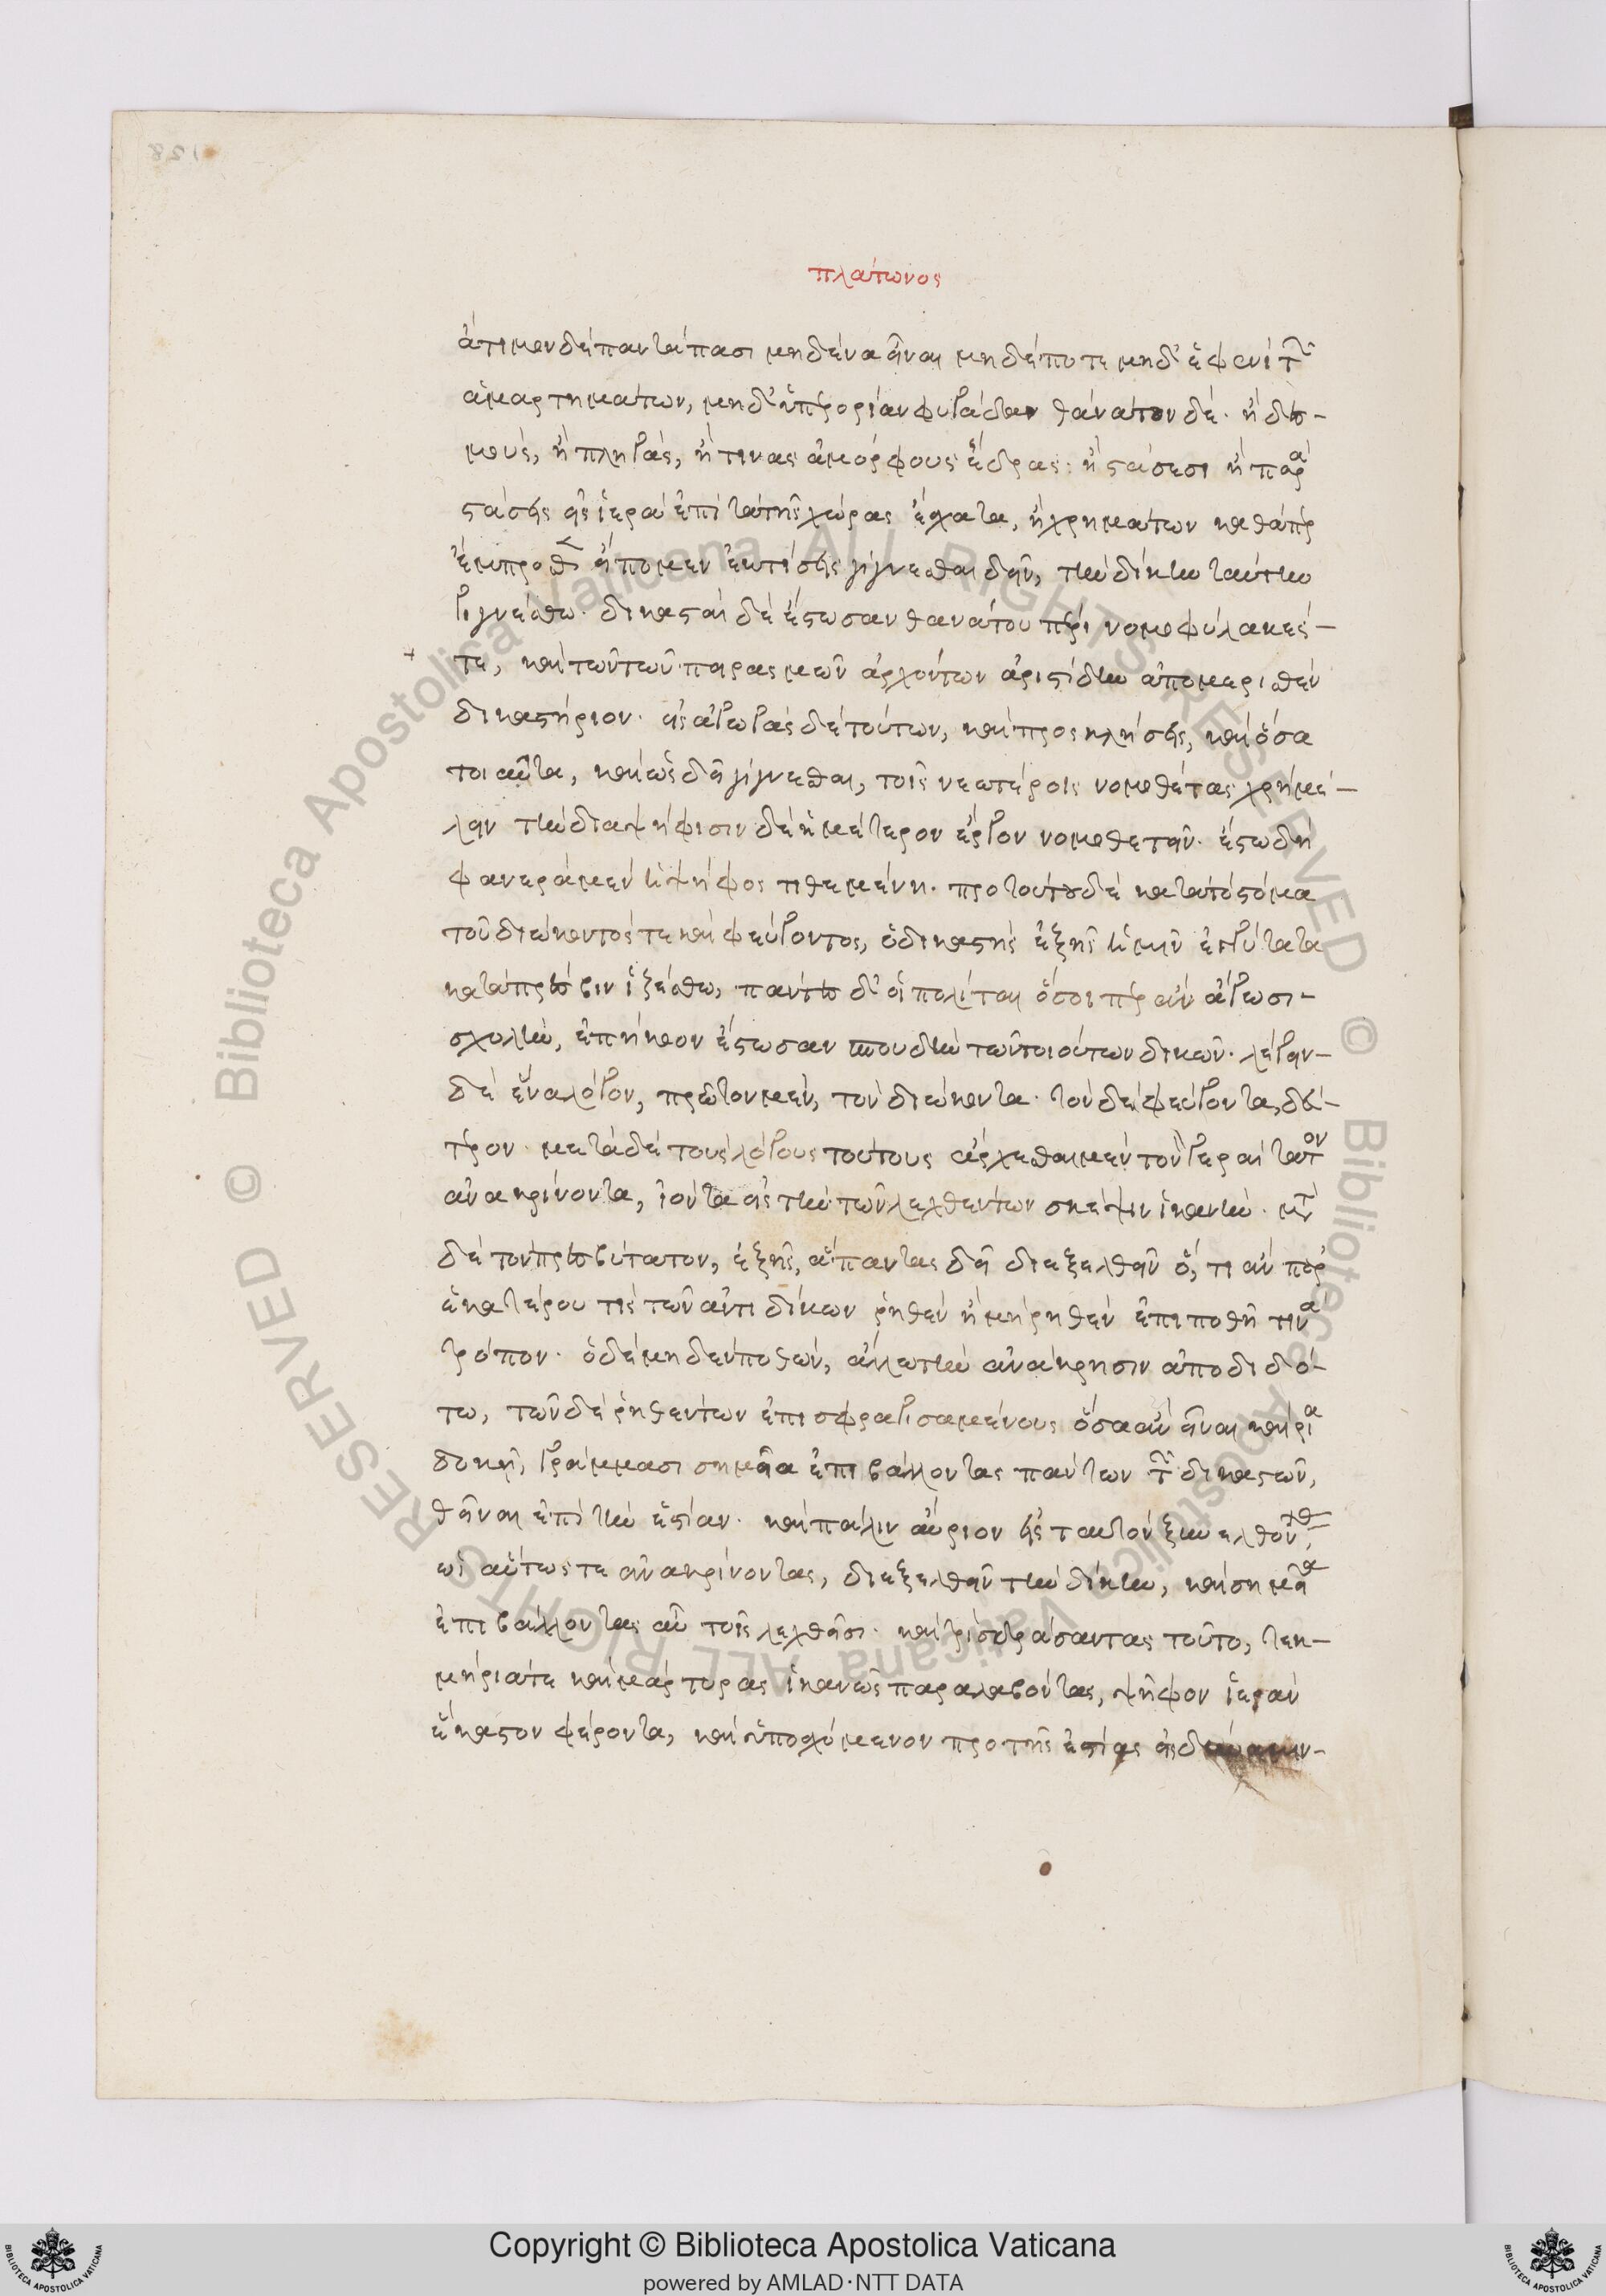 πλάτωνος
ἄτιμον δὲ παντάπασι μηδένα εἶναι μηδέποτε μηδ' ἐφ' ἑνὶ τῶν
ἁμαρτημάτων, μηδ' ὑπερορίαν φυγάδα· θάνατον δὲ· ἢ δε-
σμοὺς, ἢ πληγὰς, ἤ τινας ἀμόρφους ἕδρας· ἢ στάσεσι ἢ παρα
στάσεις εἰς ἱερὰ ἐπὶ τὰ τῆς χώρας ἔσχατα, ἢ χρημάτων καθάπερ
ἔμπροσθεν εἴπομεν ἐκτίσεις γίγνεσθαι δεῖν, τὴν δίκην ταύτην
γιγνέσθω· δικασταὶ δὲ ἔστωσαν θανάτου πέρι νομοφύλακές-
τε, καὶ τῶν τῶν περασμῶν ἀρχόντων ἀριστίδην ἀπομερισθὲν
δικαστήριον· εἰσαγωγὰς δὲ τούτων, καὶ προσκλήσεις, καὶ ὅσα
τοιαῦτα, καὶ ὡς δεῖ γίγνεσθαι, τοῖς νεωτέροις νομοθέταις χρὴ μέ-
λειν τὴν διαψήφισιν δὲ ἡμέτερον ἔργον νομοθετεῖν· ἔστω δὴ
φανερὰ μὲν ἡ ψῆφος τιθεμένη· πρὸ τούτου δὲ κατὰ τὸ στόμα
τοῦ διώκοντός τε καὶ φεύγοντος, ὁ δικαστὴς ἑξῆς ἡμῖν ἐγγύτατα
κατὰ πρέσβιν ἱζέσθω, πάντες δ' οἱ πολῖται ὅσοι περ ἂν ἄγωσι-
σχολὴν, ἐπήκοοι ἔστωσαν σπουδῇ τῶν τοιούτων δικῶν· λέγειν-
δὲ ἕνα λόγον, πρῶτον μὲν, τὸν διώκοντα· τὸν δὲ φεύγοντα, δεύ-
τερον· μετὰ δὲ τοὺς λόγους τούτους ἄρχεσθαι μὲν τὸν γεραίτατον
ἀνακρίνοντα, ἰόντα εἰς τὴν τῶν λεχθέντων σκέψιν ἱκανήν· μετὰ
δὲ τὸν πρεσβύτατον, ἑξῆς, ἅπαντας δεῖ διεξελθεῖν ὅ, τι ἂν παρ'
ἑκατέρου τις τῶν ἀντιδίκων ῥηθὲν ἢ μὴ ῥηθὲν ἐπιποθῇ τινα
τρόπον· ὁ δὲ μηδὲν ποθῶν, ἄλλῳ τὴν ἀνάκρισιν ἀποδιδό-
τω, τῶν δὲ ῥηθέντων ἐπισφραγισαμένους ὅσα ἂν εἶναι καίρια
δοκῇ, γράμμασι σημεῖα ἐπιβάλλοντας πάντων τῶν δικαστῶν,
θεῖναι ἐπὶ τὴν ἑστίαν· καὶ πάλιν αὔριον εἰς ταυτὸν ξυνελθόντας,
ὡσαύτως τε ἀνακρίνοντας, διεξελθεῖν τὴν δίκην, καὶ σημεῖα
ἐπιβάλλοντας αὖ τοῖς λεχθεῖσι· καὶ τρὶς δράσαντας τοῦτο, τεκ-
μήριά τε καὶ μάρτυρας ἱκανῶς παραλαβόντας, ψῆφον ἱερὰν
ἕκαστον φέροντα, καὶ ὑποσχόμενον πρὸ τῆς ἑστίας εἰς